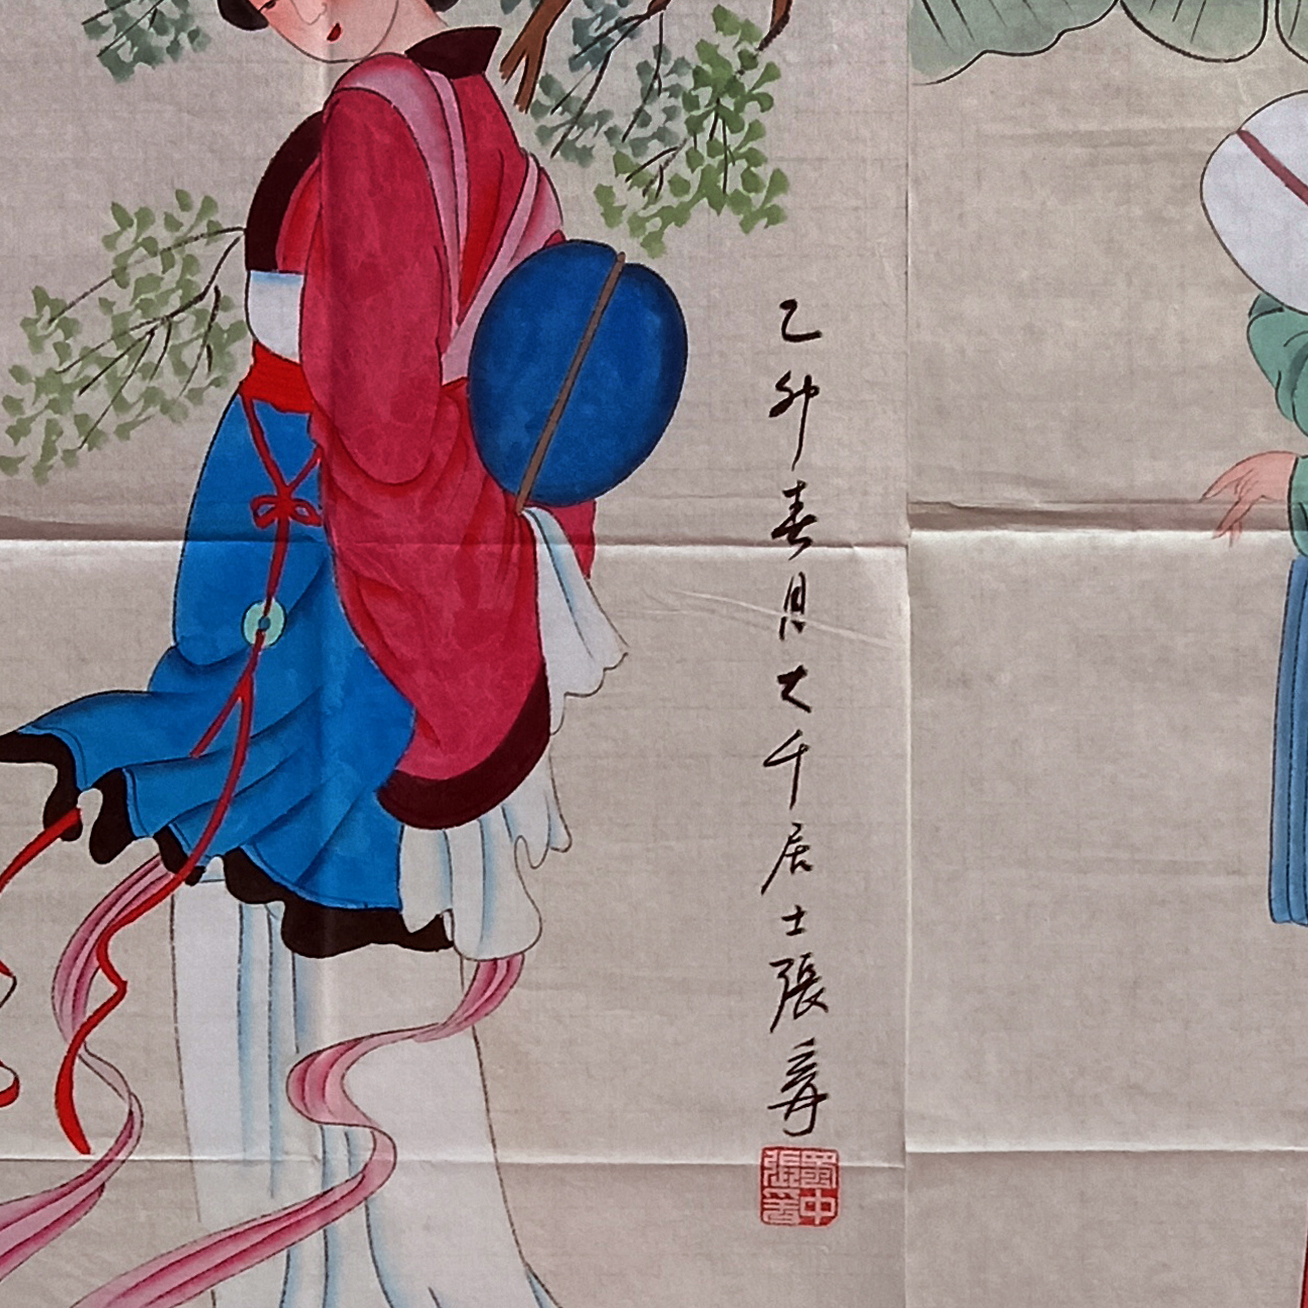 乙卯春月大千居士張爰
蜀中張爰